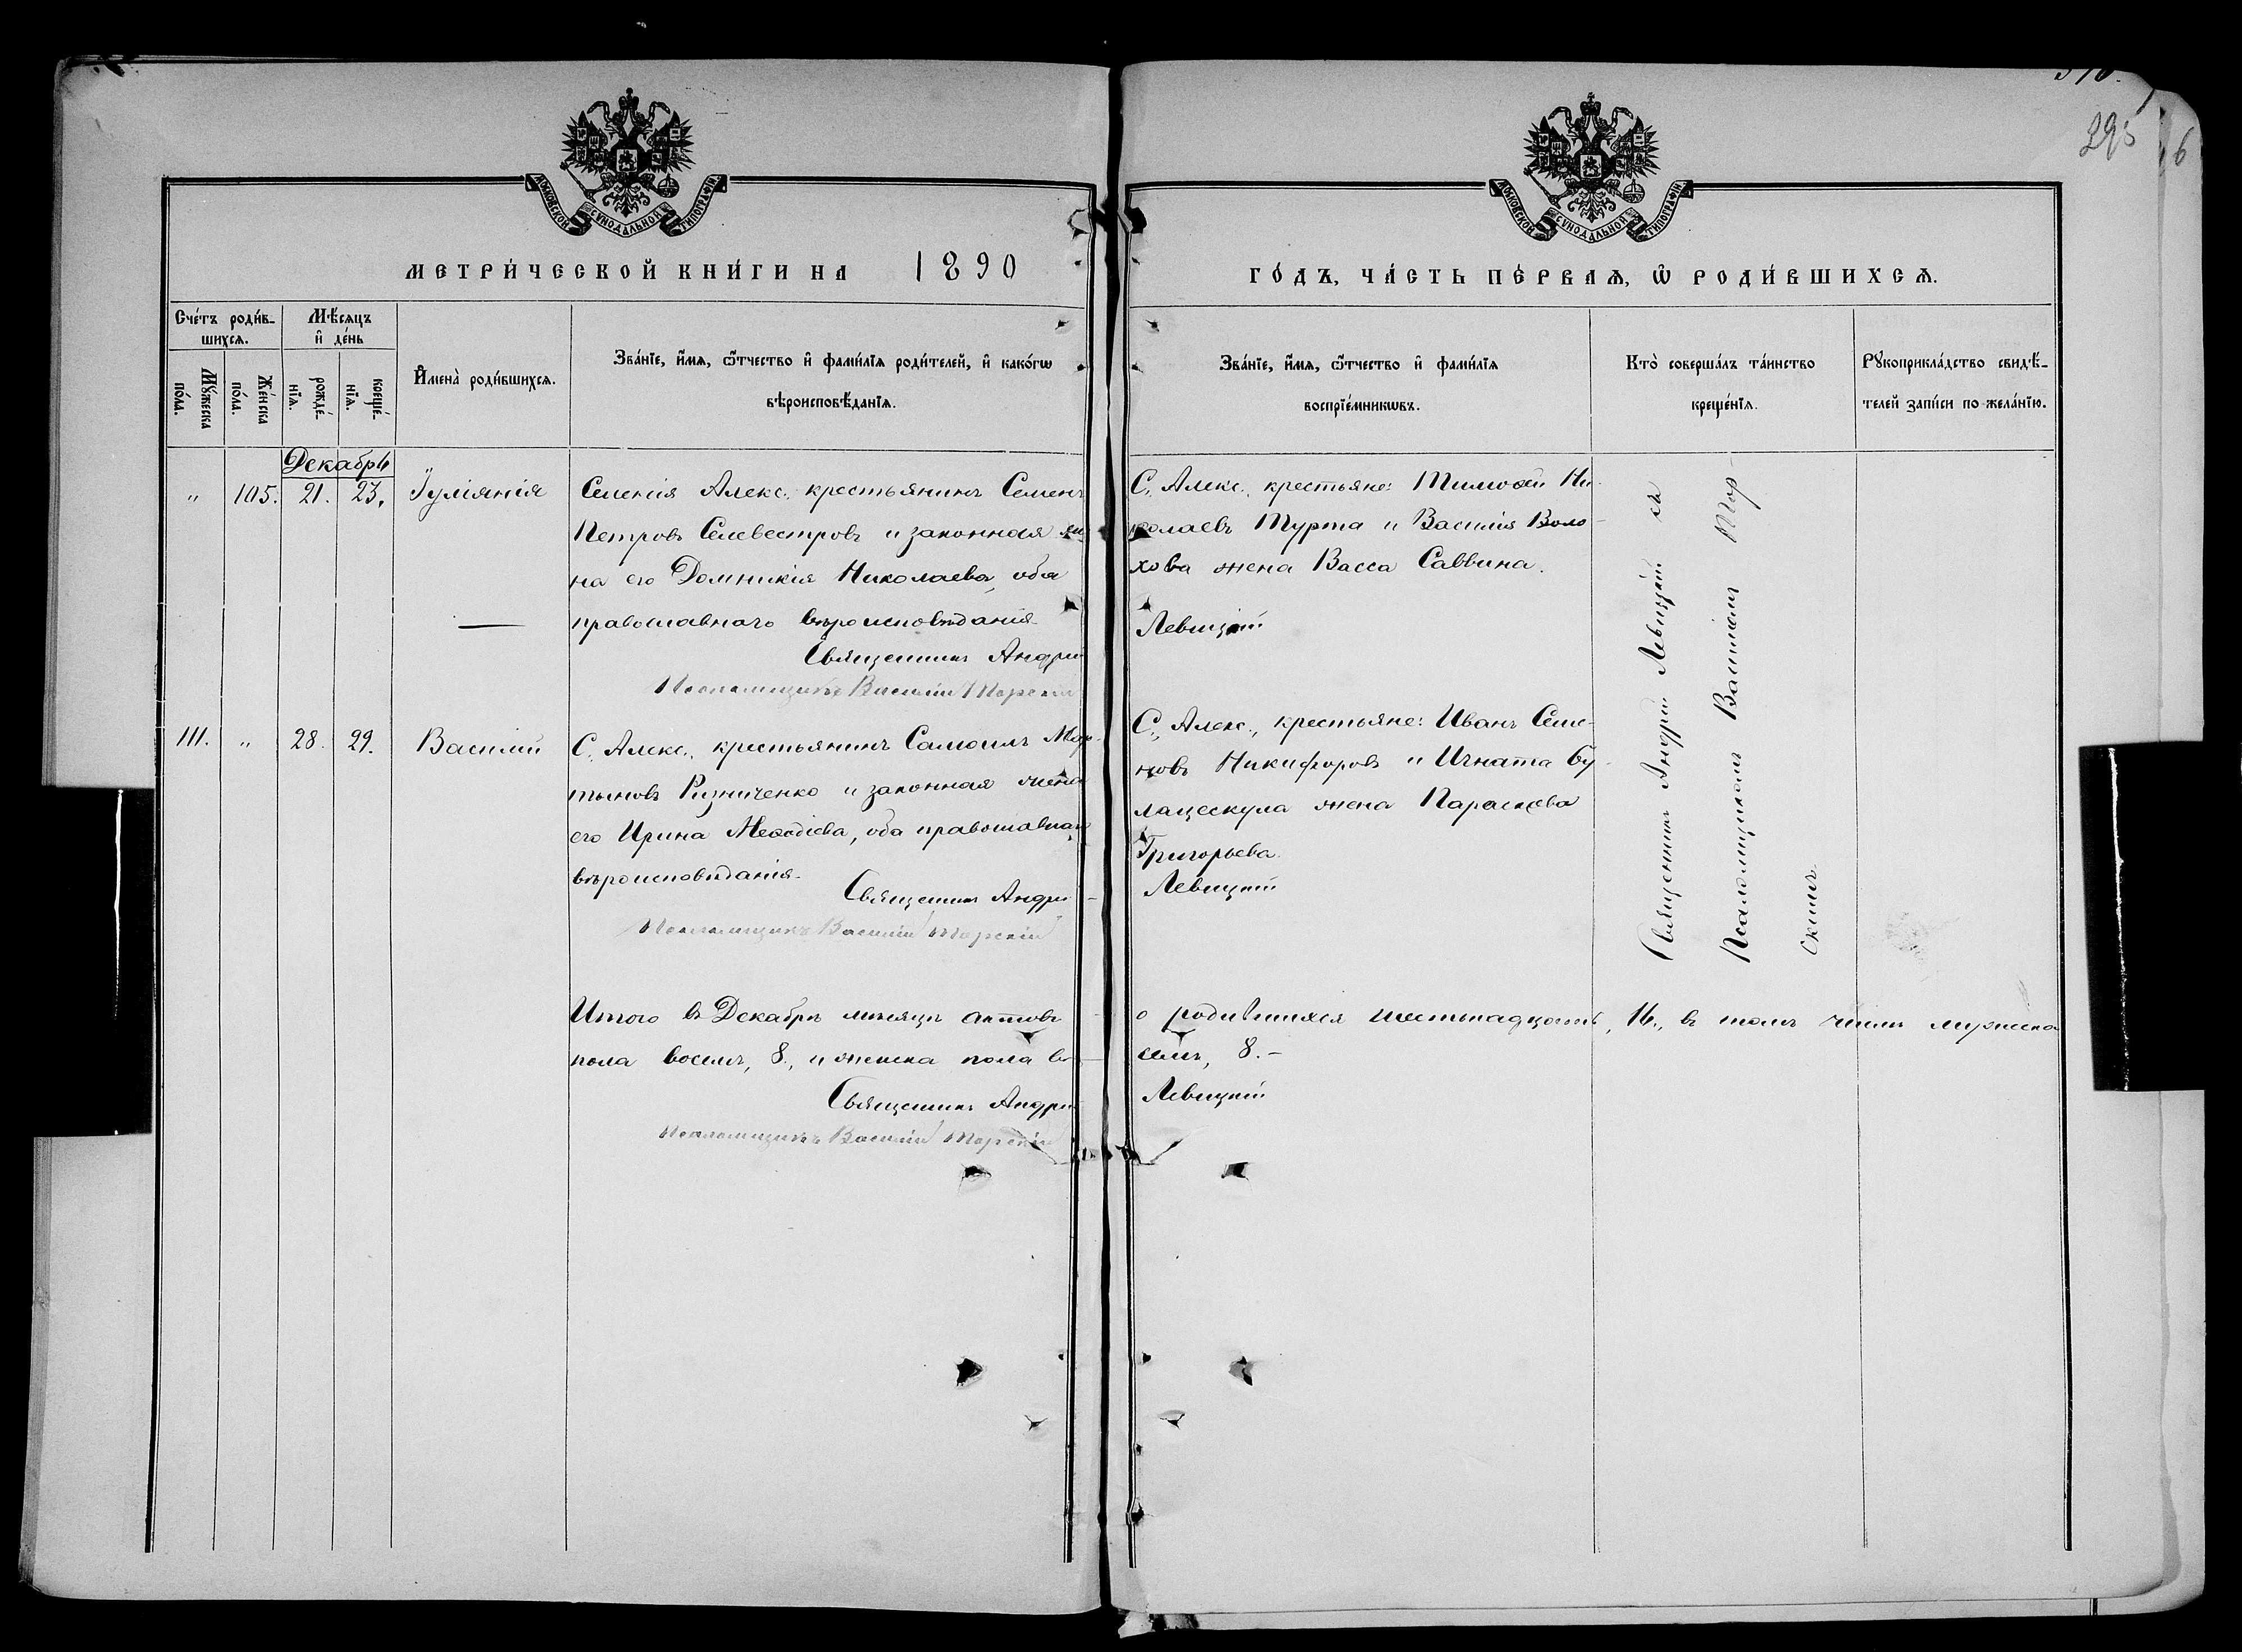 295
МОСКОВСКОЙ СѴНОДАЛЬНОЙ ТИПОГРАФІИ
МОСКОВСКОЙ СѴНОДАЛЬНОЙ ТИПОГРАФІИ
МЕТРИ́ЧЕСКОЙ КНИ́ГИ НА 1890
ГО́ДЪ, ЧА́СТЬ ПЕ́РВАѦ, Ѡ҆ РОДИ́ВШИХСѦ.
Сче́тъ роди́в-
шихсѧ.
Мꙋ́жеска
по́ла.
Же́нска
по́ла.
Мѣ́сѧцъ
и҆ де́нь
рожде́-
нїѧ.
креще́-
нїѧ.
И҆мена̀ роди́вшихсѧ.
Зва́нїе, и҆́мѧ, ѻ҆́тчество и҆ фами́лїѧ роди́телей, и҆ како́гѡ
вѣроисповѣ́данїѧ.
Зва́нїе, и҆́мѧ, ѻ҆́тчество и҆ фами́лїѧ
воспрїе́мникѡвъ.
Кто̀ соверша́лъ та́инство
креще́нїѧ.
Рꙋкоприкла́дство свидѣ́-
телей за́писи по жела́нїю.
Декабрь
" 105. 21. 23. Іуліянія
Селенія Алекс. крестьянинъ Семенъ
Петровъ Селевестровъ и законная же
на его Домникія Николаева, оба
православнаго вѣроисповѣданія.
Священникъ Андрей
Псаломщикъ Василій Торскій
С. Алекс., крестьяне: Тимоѳей Ни-
колаевъ Турта и Василія Воло-
хова жена Васса Саввина.
Левицкій
Священникъ Андрей Левицкій съ
Псаломщикомъ Василіемъ Тор-
скимъ.
111. " 28. 29. Василій
С. Алекс. крестьянинъ Самоилъ Мар-
тыновъ Ризниченко и законная жена
его Ирина Меѳодіева, оба православнаго
вѣроисповѣданія.
Священникъ Андрей
Псаломщикъ Василій Торскій
С. Алекс., крестьяне: Иванъ Семе-
новъ Никифоровъ и Игната Бу-
лацескула жена Параскева
Григорьева.
Левицкій
Итого въ Декабрѣ мѣсяцѣ актовъ о родившихся шестьнадцать, 16., въ томъ числѣ мужеска
пола восемь, 8., и женска пола восемь, 8.-
Священникъ Андрей Левицкій
Псаломщикъ Василій Торскій